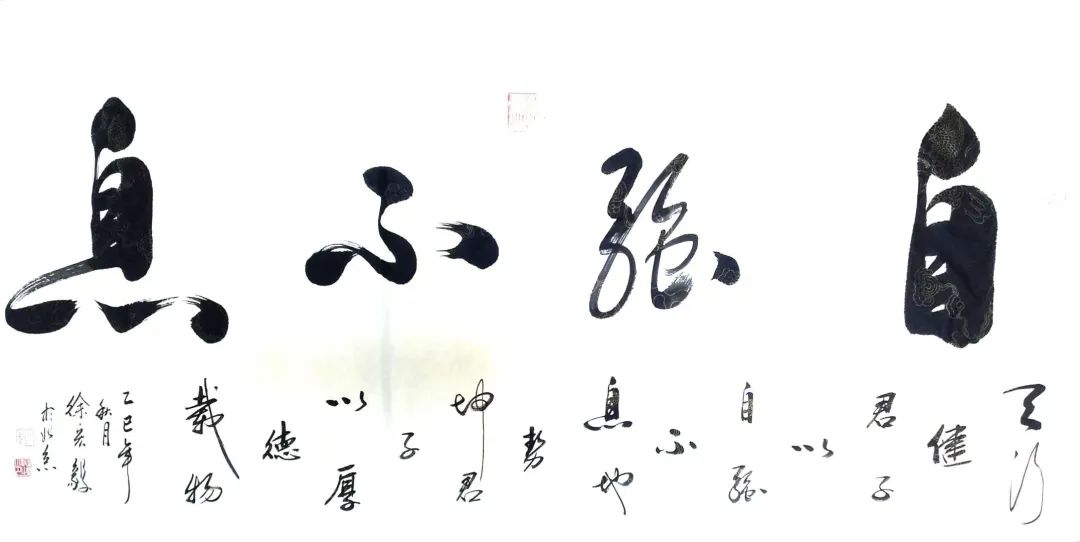 自強不息
天行
健
君子
以
自強
不
息地
勢
坤君
子
以厚
德
載物
乙巳年
秋月
徐毅
於北京